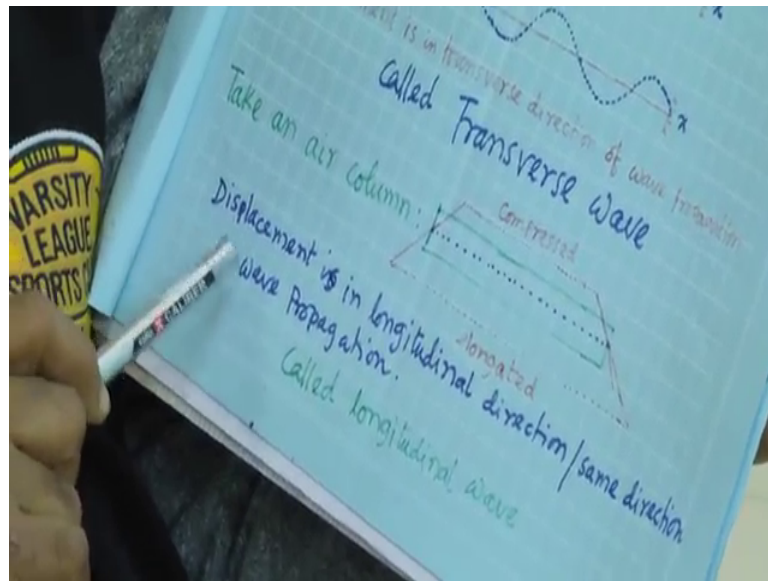 x
is in transverse direction of wave propagation
x
Called Transverse wave
Take an air column:
Compressed
elongated
Displacement is in longitudinal direction/same direction
wave Propagation.
Called longitudinal wave
VARSITY
LEAGUE
SPORTS